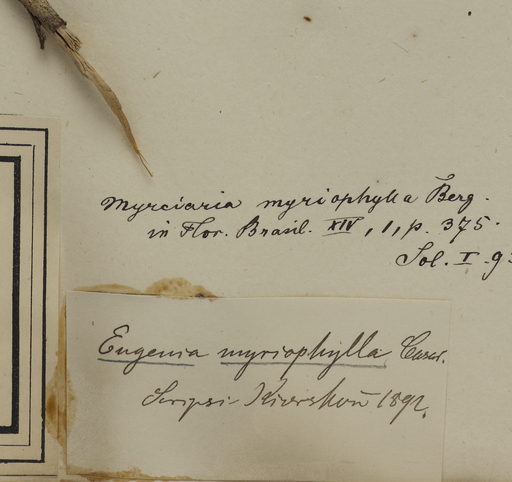 Myrciaria myriophylla Berg.
in Flor. Brasil. XIV, 1, p. 375.
Sol. I. 93
Eugenia myriophylla Casar.
Scripsi Kiærskou 1892.